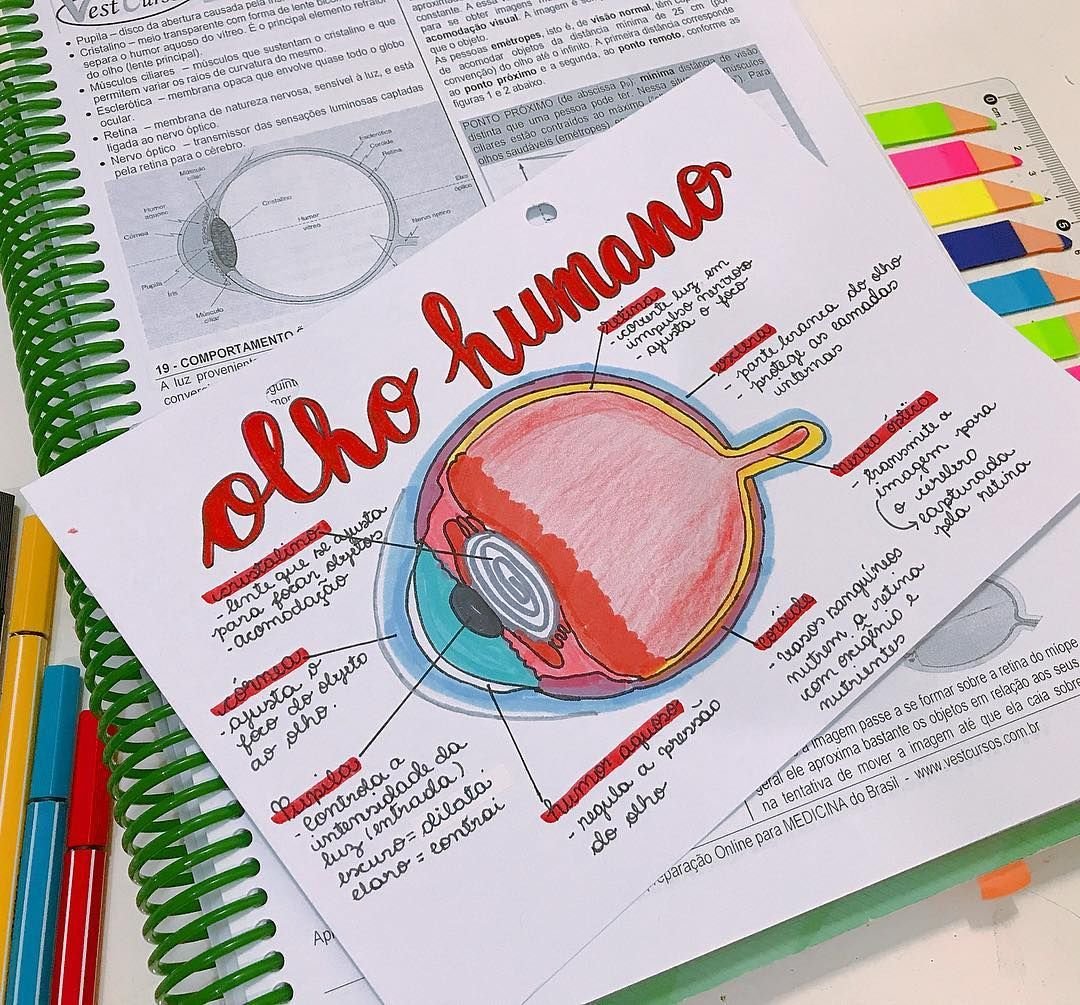 Vest Cursos
• Pupila – disco da abertura causada pela
• Cristalino – meio transparente com forma de lente
separa o humor aquoso do vítreo. É o principal elemento
do olho (lente principal).
• Músculos ciliares – músculos que sustentam o cristalino e que
permitem variar os raios de curvatura do mesmo.
• Esclerótica – membrana opaca que envolve quase todo o globo
ocular.
• Retina – membrana de natureza nervosa, sensível à luz, e está
ligada ao nervo óptico.
• Nervo óptico – transmissor das sensações luminosas captadas
pela retina para o cérebro.
Músculo
ciliar
Esclerótica
Coróide
Retina
Humor
aquoso
Cristalino
Eixo
óptico
Córnea
Humor
vítreo
Nervo óptico
Pupila
Íris
Músculo
ciliar
19 - COMPORTAMENTO
A luz
constante. A essa
para se obter imagens
acomodação visual. A imagem é
que o objeto.
As pessoas emétropes, isto é, de visão normal, têm
de acomodar objetos da distância mínima de 25 cm (por
convenção) do olho até o infinito. A primeira distância corresponde
ao ponto próximo e a segunda, ao ponto remoto, conforme as
figuras 1 e 2 abaixo.
PONTO PRÓXIMO (de abscissa pₚ): mínima distância de visão
distinta que uma pessoa pode ter. Nessa músculos
ciliares estão contraídos ao máximo Para
olhos saudáveis (emétropes)
olho humano
retina
- converte luz em
impulso nervoso
- ajusta o foco
esclera
- parte branca do olho
- protege as camadas
internas
nervo óptico
- transmite a
imagem para
o cérebro
capturada
pela retina
coróide
- vasos sanguíneos
nutrem a retina
com oxigênio e
nutrientes
humor aquoso
- regula a pressão
do olho
cristalino
- lente que se ajusta
para focar objetos
- acomodação
córnea
- ajusta o
foco do objeto
ao olho.
Pupila
- controla a
intensidade da
luz (entrada)
escuro = dilata
claro = contrai
imagem passe a se formar sobre a retina do míope
geral ele aproxima bastante os objetos em relação aos seus
na tentativa de mover a imagem até que ela caia sobre
Preparação Online para MEDICINA do Brasil - www.vestcursos.com.br
0 cm
1
2
3
4
5
6